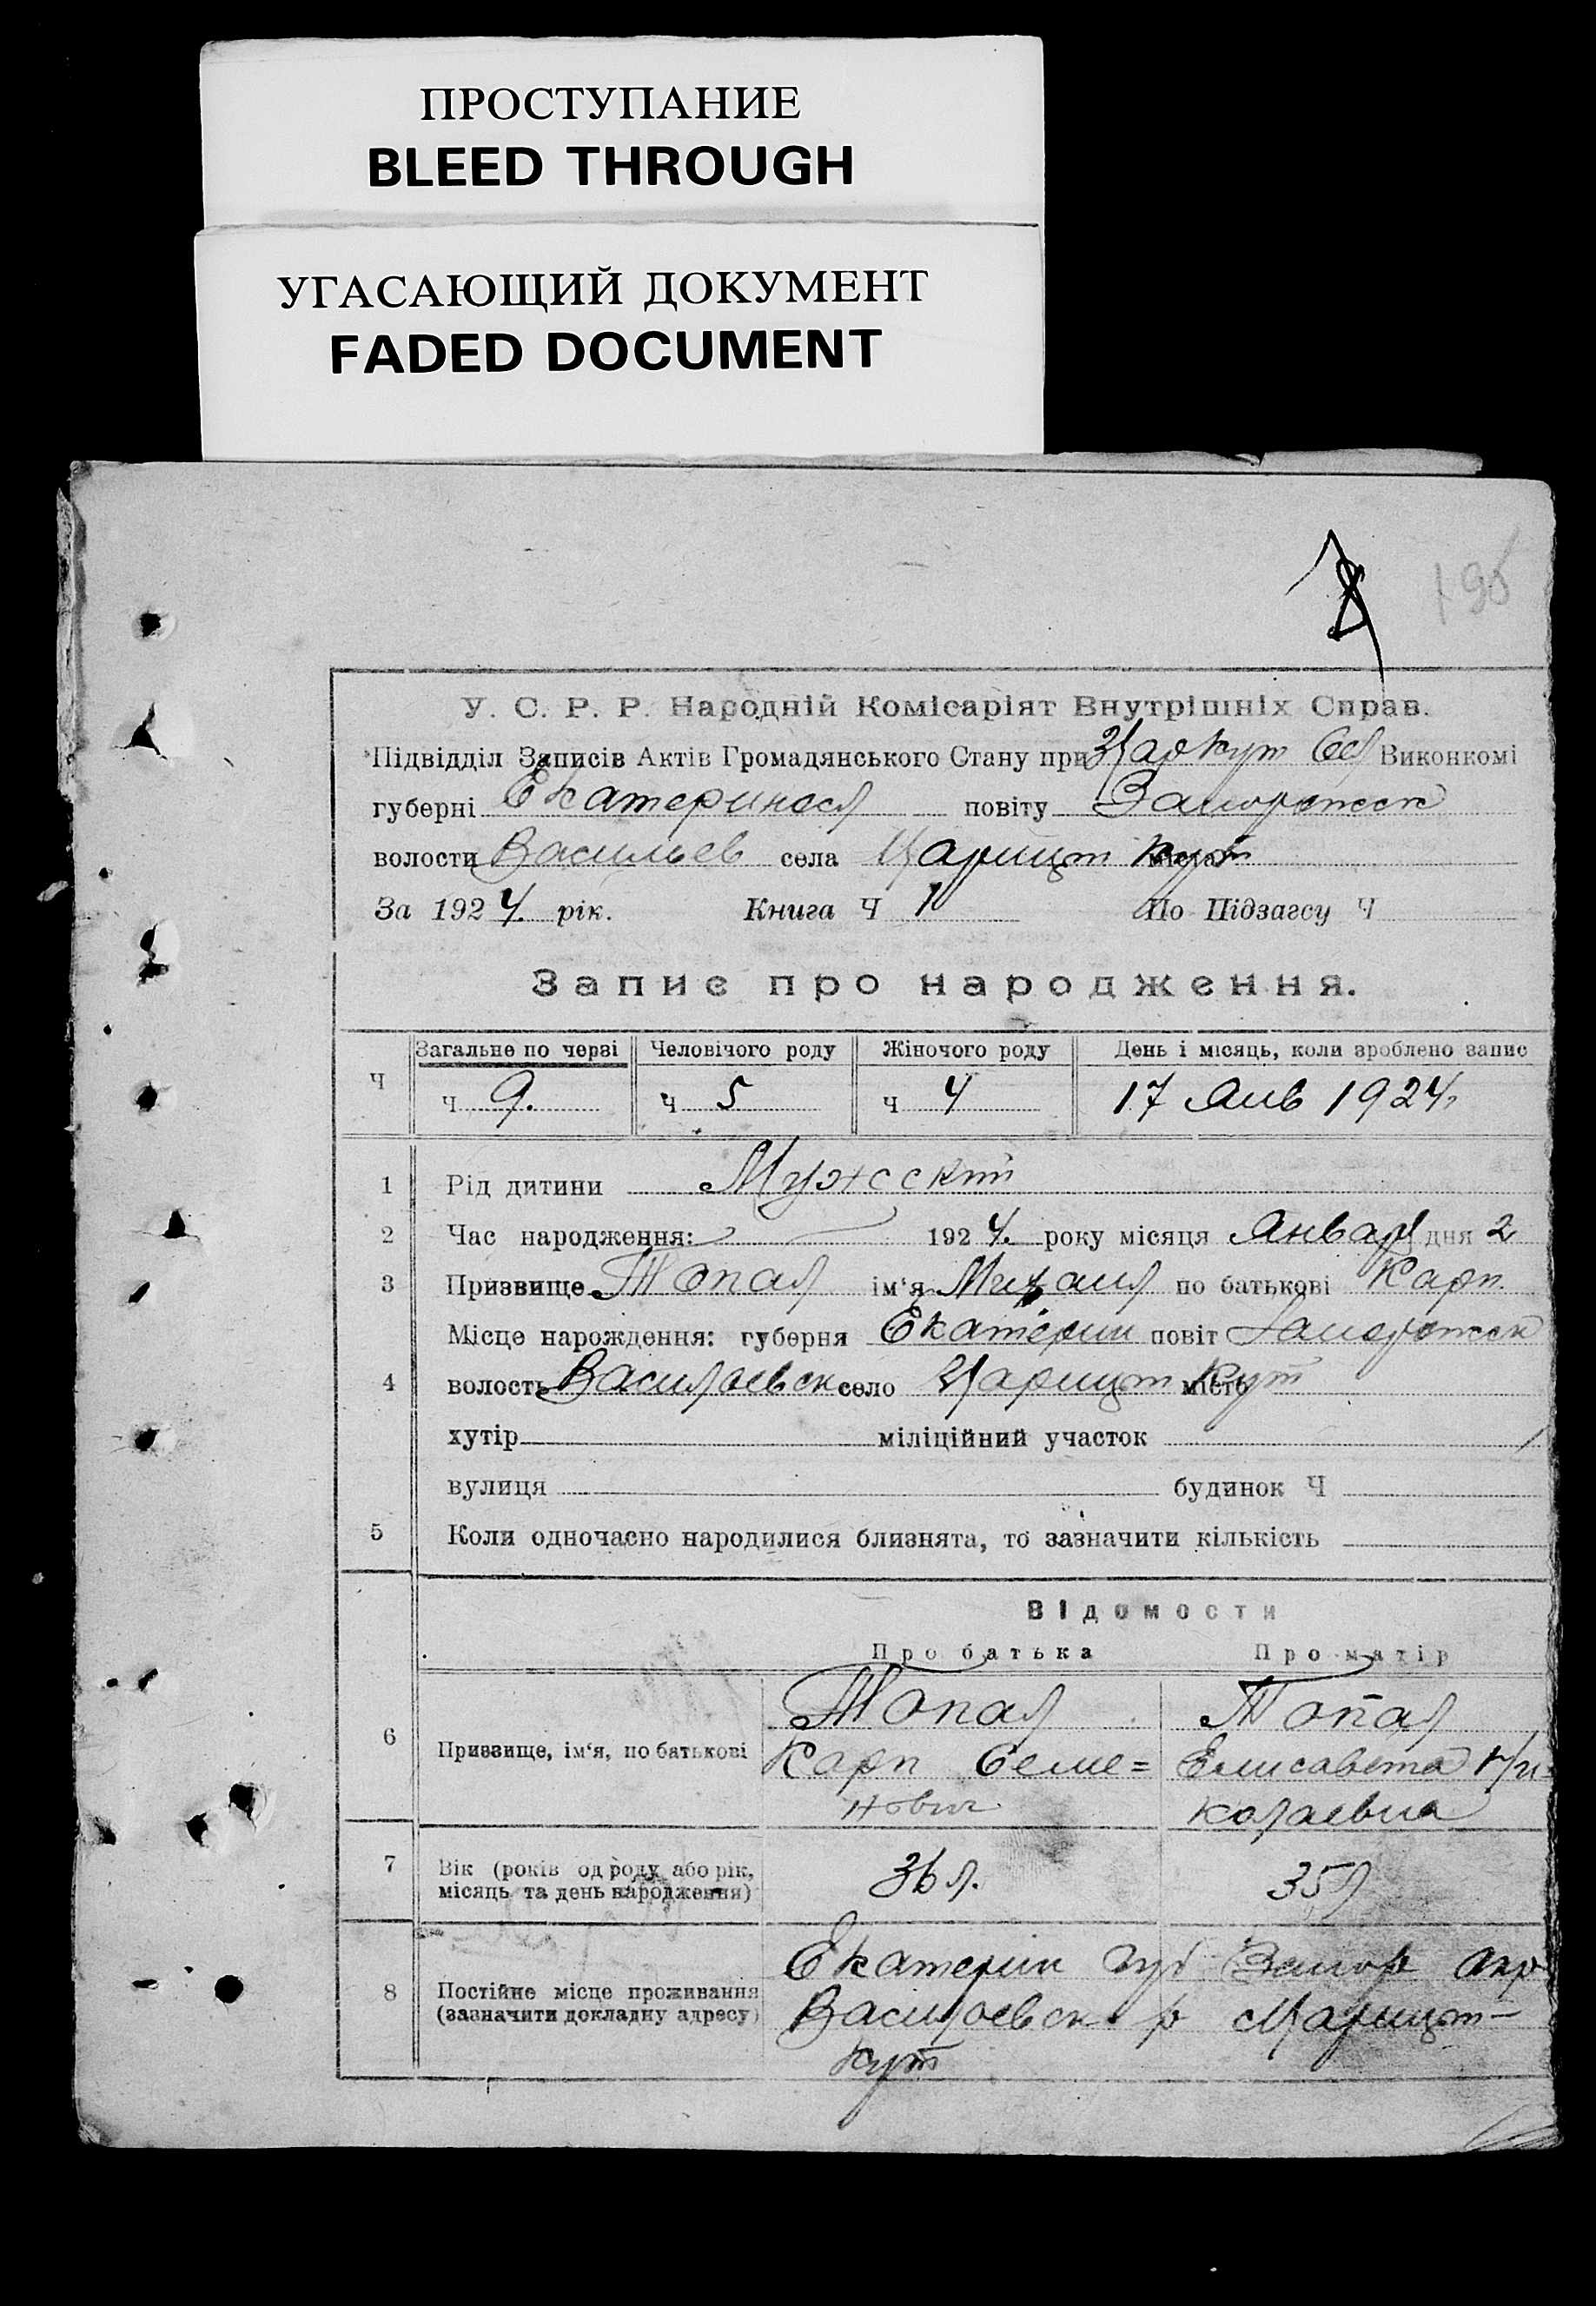 ПРОСТУПАНИЕ
BLEED THROUGH
УГАСАЮЩИЙ ДОКУМЕНТ
FADED DOCUMENT
195
У. С. Р. Р. Народній Комісаріят Внутрішніх Справ.
Підвідділ Записів Актів Громадянського Стану при Царкут Сел Виконкомі
губерні Екатериносл повіту Запорожск
волости Васильев села Царицын Кут міста
За 1924. рік. Книга Ч 1 По Підзагсу Ч
Запис про народження.
Загальне по черзі Человічого роду Жіночого роду День і місяць, коли зроблено запис
Ч Ч 9. Ч 5 Ч 4 17 Янв 1924.
1 Рід дитини Мужской
2 Час народження: 1924. року місяця Января дня 2
3 Призвище Топал ім'я Михаил по батькові Карп.
Місце нарождення: губерня Екатерин повіт Запорожск
4 волость Васильевск село Царицын Кут місто
хутір міліційний участок
вулиця будинок Ч
5 Коли одночасно народилися близнята, то зазначити кількість
Відомости
Про батька Про матір
6 Призвище, ім'я, по батькові
Топал Топал
Карп Семе= Елисавета Ни-
нович колаевна
7 Вік (років од роду або рік, місяць та день народження) 36 л. 35 л
8 Постійне місце проживання (зазначити докладну адресу)
Екатерин губ Запор окр
Васильевск р Царицын-
Кут